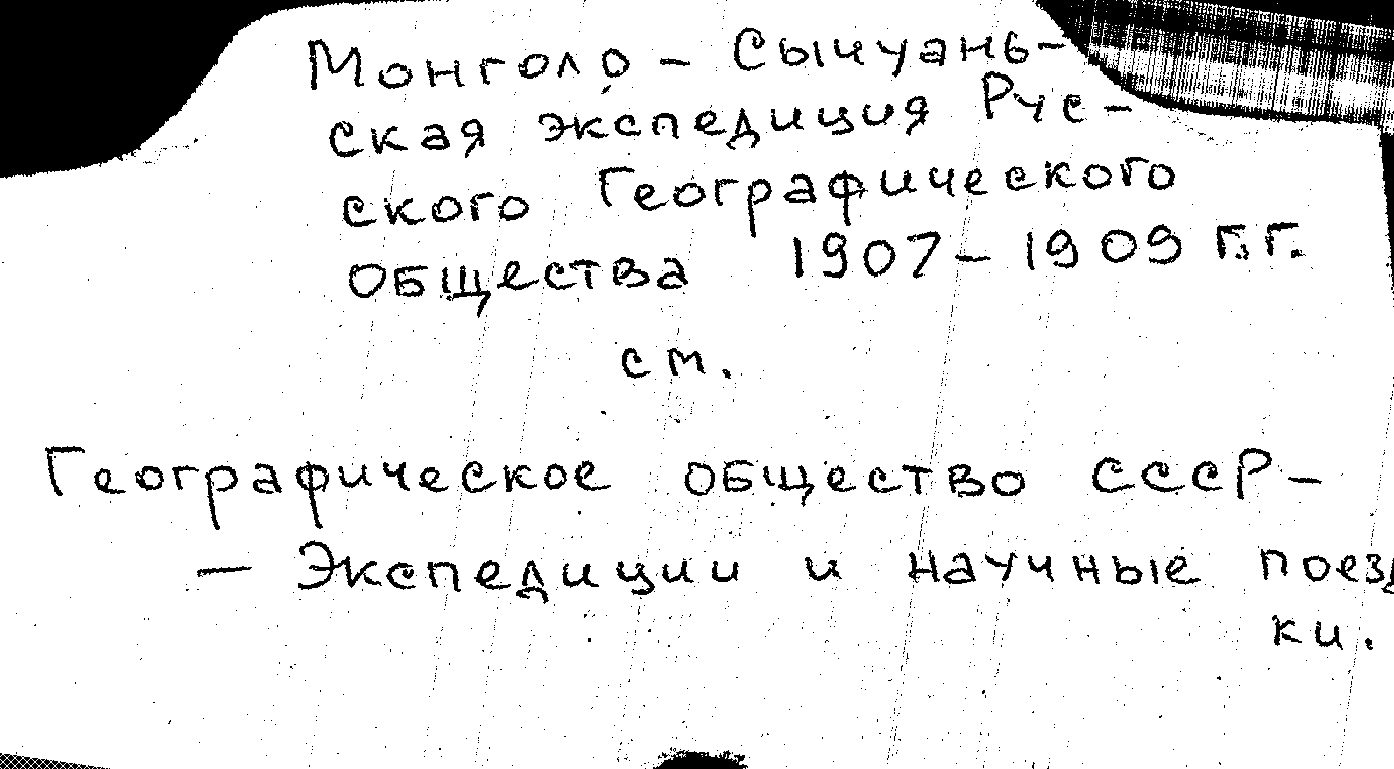 Монголо - Сычуань-
ская экспедиция Рус-
ского Географического
общества 1907 - 1909 г.г.
см.
Географическое общество СССР -
- Экспедиции и научные поезд
ки.